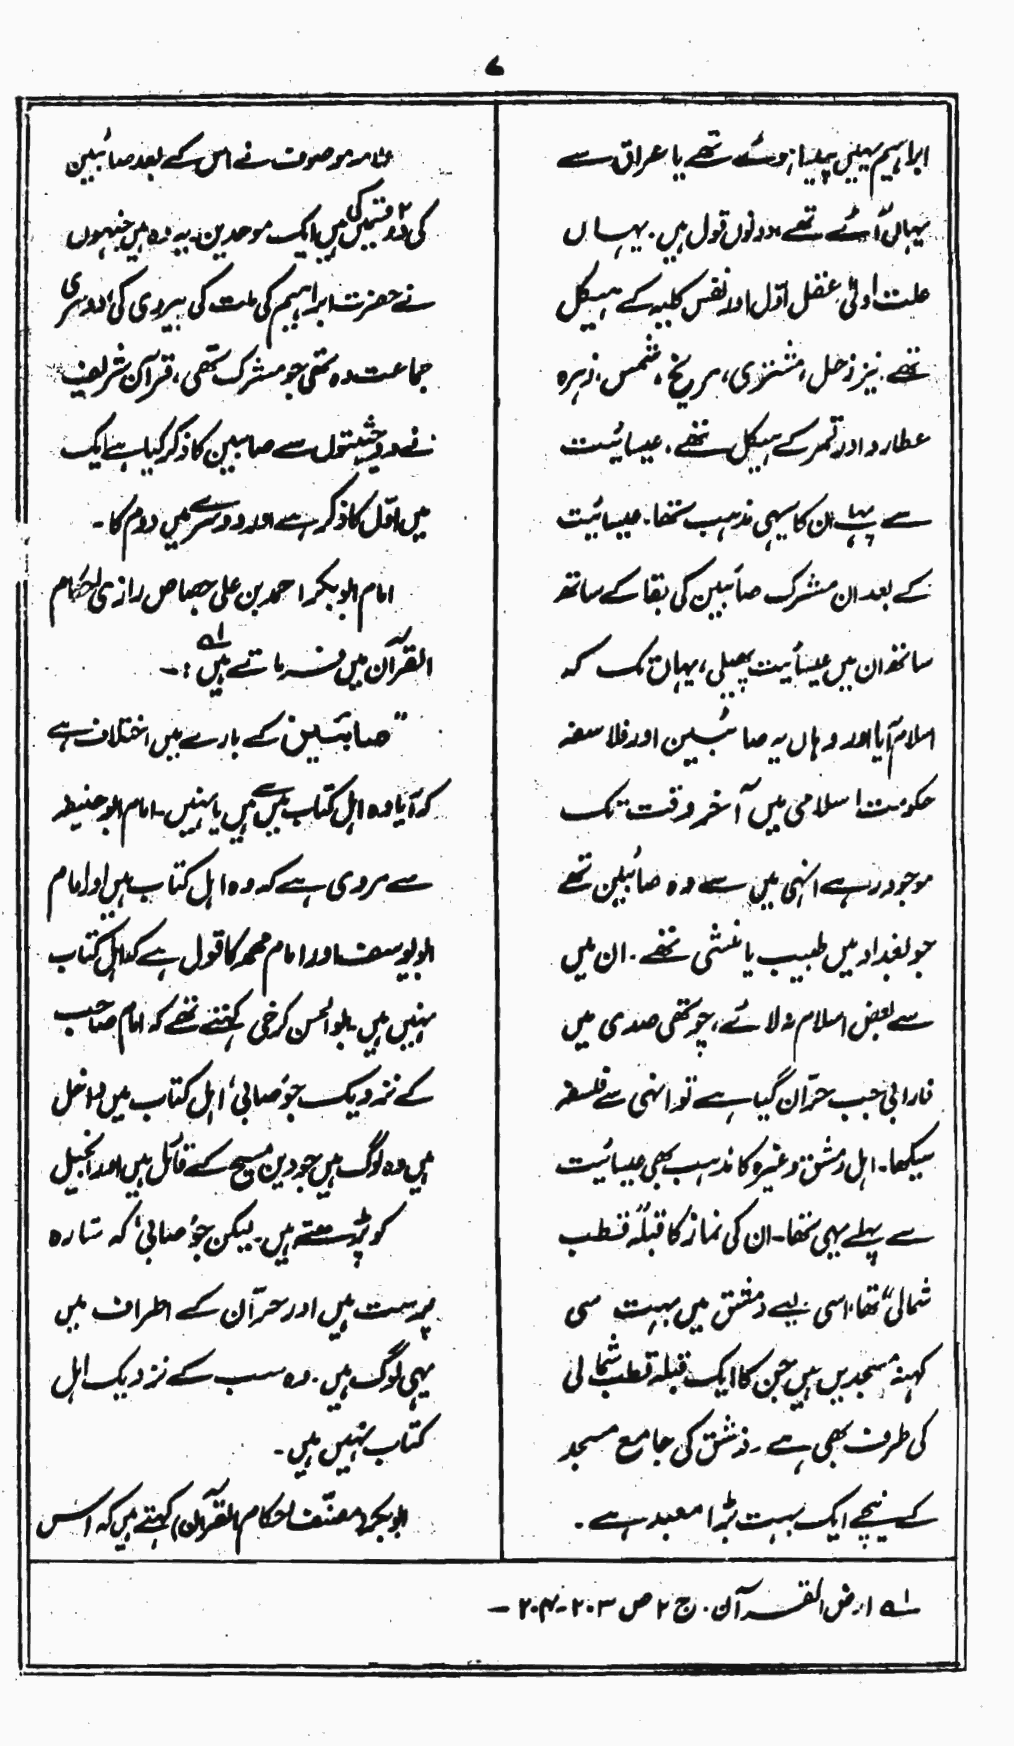 ۷
ابراہیم یہیں پیدا ہوئے تھے یا عراق سے
یہاں آئے تھے، دونوں قول ہیں۔ یہاں
علت اولیٰ، عقل اول اور نفس کلیہ کے ہیکل
تھے۔ نیز زحل، مشتری، مریخ، شمس، زہرہ
عطارد اور قمر کے ہیکل تھے۔ عیسائیت
سے پہلے ان کا یہی مذہب تھا۔ عیسائیت
کے بعد ان مشرک صائبین کی بقا کے ساتھ
ساتھ ان میں عیسائیت پھیلی، یہاں تک کہ
اسلام آیا اور وہاں یہ صائبین اور فلاسفہ
حکومت اسلامی میں آخر وقت تک
موجود رہے انہی میں سے وہ صائبین تھے
جو بغداد میں طبیب یا منشی تھے۔ ان میں
سے بعض اسلام نہ لائے، چوتھی صدی میں
فارابی جب حرّان گیا ہے تو انہی سے فلسفہ
سیکھا۔ اہل دمشق وغیرہ کا مذہب بھی عیسائیت
سے پہلے یہی تھا۔ ان کی نماز کا قبلہ "قطب
شمالی" تھا، اسی لیے دمشق میں بہت سی
کہنہ مسجدیں ہیں جن کا ایک قبلہ قطب شمالی
کی طرف بھی ہے۔ دمشق کی جامع مسجد
کے نیچے ایک بہت بڑا معبد ہے۔
علامہ موصوف نے اس کے بعد صائبین
کی ۲ دو قسمیں کی ہیں ایک موحدین۔ یہ وہ ہیں جنہوں
نے حضرت ابراہیم کی ملت کی پیروی کی، دوسری
جماعت وہ تھی جو مشرک تھی، قرآن شریف
نے دو حیثیتوں سے صابین کا ذکر کیا ہے ایک
میں اوّل کا ذکر ہے اور دوسرے میں دوم کا۔
امام ابو بکر احمد بن علی جصاص رازی احکام
القرآن میں فرماتے ہیں لہ:۔
"صابئین کے بارے میں اختلاف ہے
کہ آیا وہ اہل کتاب میں سے ہیں یا نہیں۔ امام ابو حنیفہ
سے مروی ہے کہ وہ اہل کتاب ہیں اور امام
ابو یوسف اور امام محمد کا قول ہے کہ اہل کتاب
نہیں ہیں۔ ابو الحسن کرخی کہتے تھے کہ امام صاحب
کے نزدیک جو 'صابی' اہل کتاب میں داخل
ہیں وہ لوگ ہیں جو دین مسیح کے قائل ہیں اور انجیل
کو پڑھتے ہیں۔ لیکن جو 'صابی' کہ ستارہ
پرست ہیں اور حرّان کے اطراف میں
یہی لوگ ہیں۔ وہ سب کے نزدیک اہل
کتاب نہیں ہیں۔
ابو بکر (مصنّف احکام القرآن) کہتے ہیں کہ اس
لہ ارض القرآن۔ ج ۲ ص ۲۰۳-۲۰۴۔